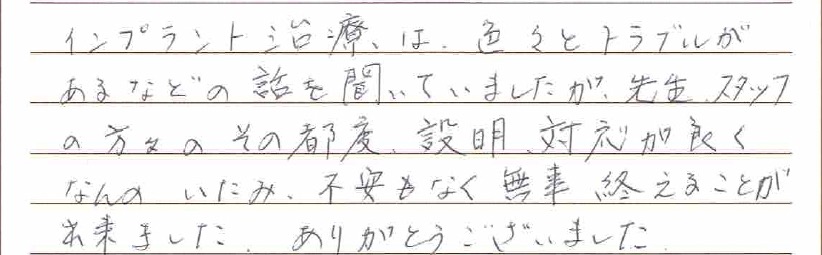 インプラント治療、は、色々とトラブルが
あるなどの話を聞いていましたが、先生、スタッフ
の方々のその都度、説明、対応が良く
なんのいたみ、不安もなく無事終えることが
出来ました。ありがとうございました。